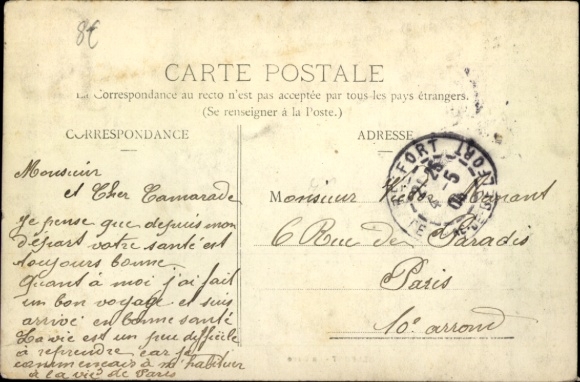 8€
CARTE POSTALE
La Correspondance au recto n'est pas acceptée par tous les pays étrangers.
(Se renseigner à la Poste.)
CORRESPONDANCE
Monsieur
et Cher Camarade
Je pense que depuis mon
départ votre santé est
toujours bonne
Quant à moi j'ai fait
un bon voyage et suis
arrivé en bonne santé
La vie est un peu difficile
à reprendre car je
commençais à m'habituer
à la vie de Paris
ADRESSE
Monsieur
6 Rue de Paradis
Paris
10e arrond
BELFORT
25
-5
04